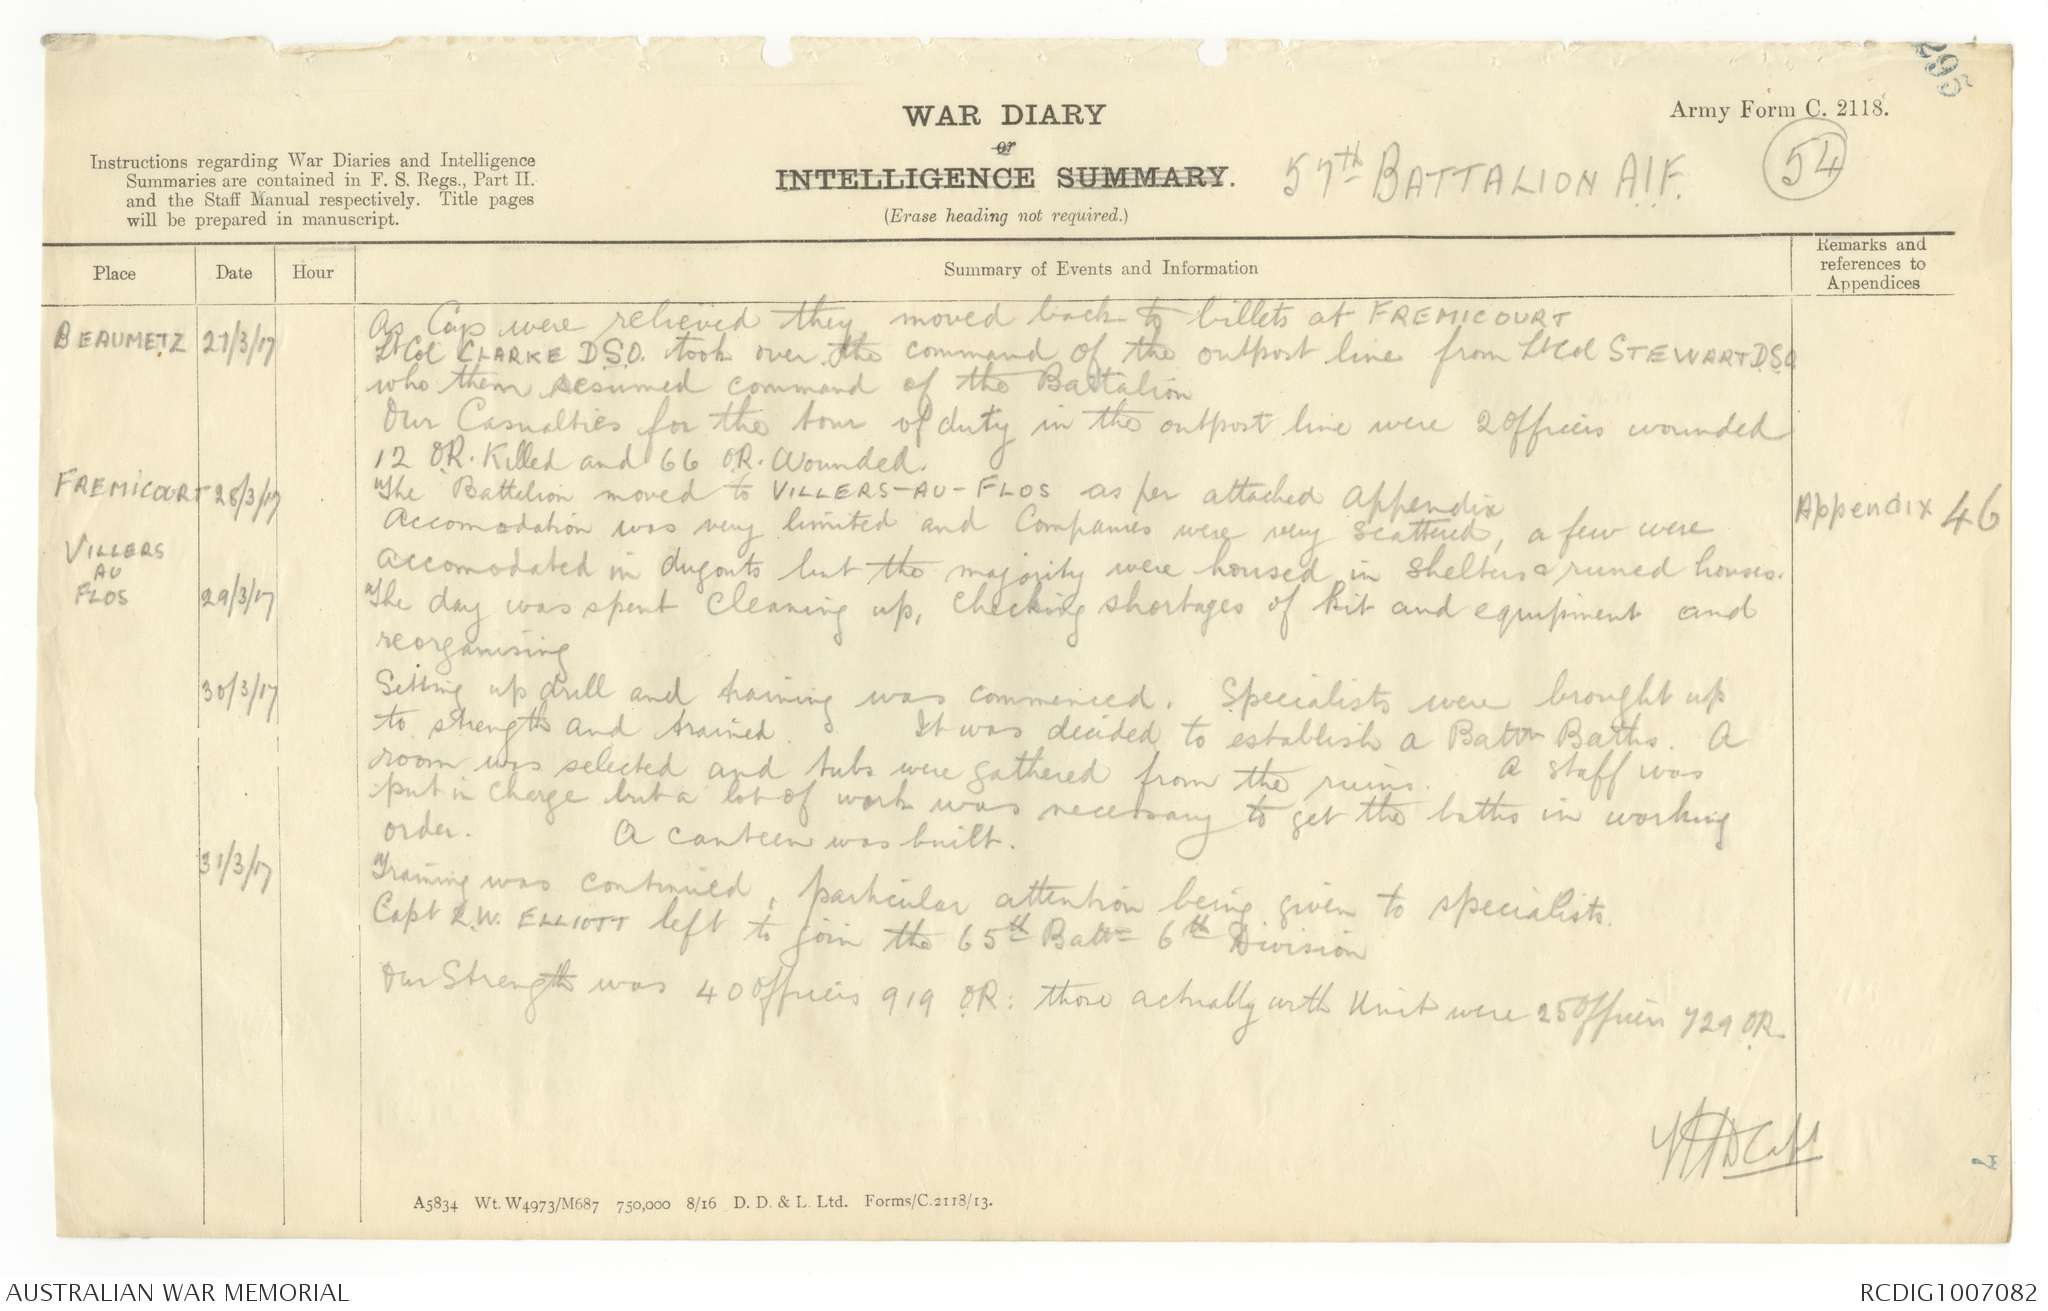 295
WAR DIARY
or
INTELLIGENCE SUMMARY.
(Erase heading not required.)
Army Form C. 2118.
57th BATTALION AIF.
54
Instructions regarding War Diaries and Intelligence
Summaries are contained in F. S. Regs., Part II.
and the Staff Manual respectively. Title pages
will be prepared in manuscript.
Place Date Hour Summary of Events and Information Remarks and references to Appendices
BEAUMETZ 27/3/17 As Coys were relieved they moved back to billets at FREMICOURT
Lt Col CLARKE D.S.O. took over the command of the outpost line from Lt Col STEWART D.S.O
who then resumed command of the Battalion
Our Casualties for the tour of duty in the outpost line were 2 Officers wounded
12 O.R. Killed and 66 O.R. Wounded.
FREMICOURT 28/3/17 The Battalion moved to VILLERS-AU-FLOS as per attached appendix Appendix 46
Accomodation was very limited and Companies were very scattered, a few were
VILLERS AU FLOS accomodated in dugouts but the majority were housed in shelters & ruined houses.
29/3/17 The day was spent cleaning up, checking shortages of kit and equipment and
reorganising
30/3/17 Setting up drill and training was commenced. Specialists were brought up
to strength and trained. It was decided to establish a Battn Baths. A
room was selected and tubs were gathered from the ruins. A staff was
put in charge but a lot of work was necessary to get the baths in working
order. A canteen was built.
31/3/17 Training was continued, particular attention being given to specialists.
Capt R.W. ELLIOTT left to join the 65th Battn 6th Division
Our Strength was 40 Officers 919 OR: those actually with Unit were 25 Officers 729 OR.
Capt
A5834 Wt. W4973/M687 750,000 8/16 D. D. & L. Ltd. Forms/C.2118/13.
AUSTRALIAN WAR MEMORIAL
RCDIG1007082